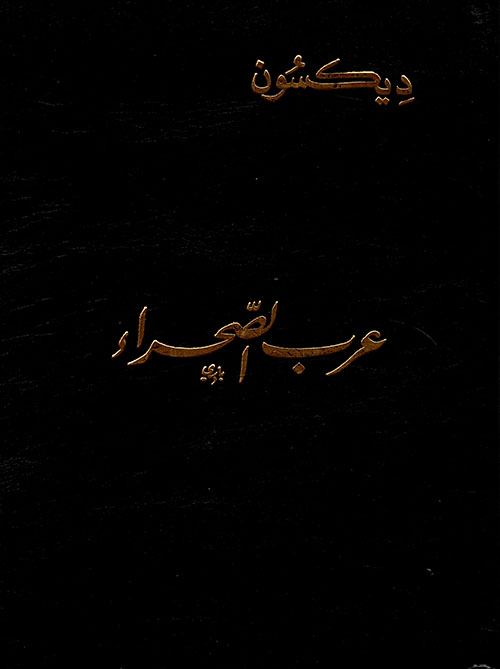 دِيكسُون
عرب الصّحراء